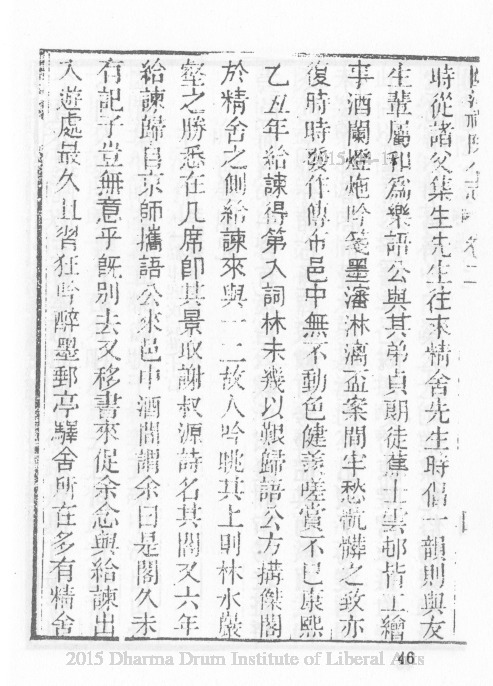 時從諸父集生先生往來精舍先生時倡一韻則與友
生輩屬和為樂語公與其弟貞朗徒蕉士雲邨皆工繪
事酒闌燈灺吟箋墨瀋淋漓盃案間牢愁骯髒之致亦
復時時發作傳布邑中無不動色健羨嗟賞不已康熙
乙丑年給諫得第入詞林未幾以艱歸語公方搆傑閣
於精舍之側給諫來與一二故人吟眺其上則林水巖
壑之勝悉在几席卽其景取謝叔源詩名其閣又六年
給諫歸自京師攜語公來邑中酒閒謂余曰是閣久未
有記子豈無意乎旣別去又移書來促余念與給諫出
入遊處最久且習狂吟醉墨郵亭驛舍所在多有精舍
46
2015 Dharma Drum Institute of Liberal Arts